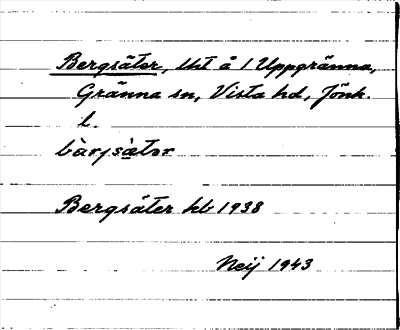 Bergsäter, lht å 1 Uppgränna,
Gränna sn, Vista hd, Jönk.
l.
bàrjsὰ̀tər
Bergsäter kb 1938
Neij 1943